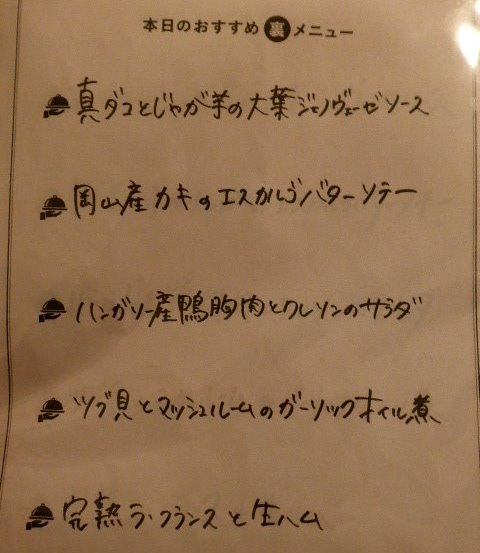 本日のおすすめ裏メニュー
真ダコとじゃが芋の大葉ジェノヴェーゼソース
岡山産カキのエスカルゴバターソテー
ハンガリー産鴨胸肉とクレソンのサラダ
ツブ貝とマッシュルームのガーリックオイル煮
完熟ラ・フランスと生ハム